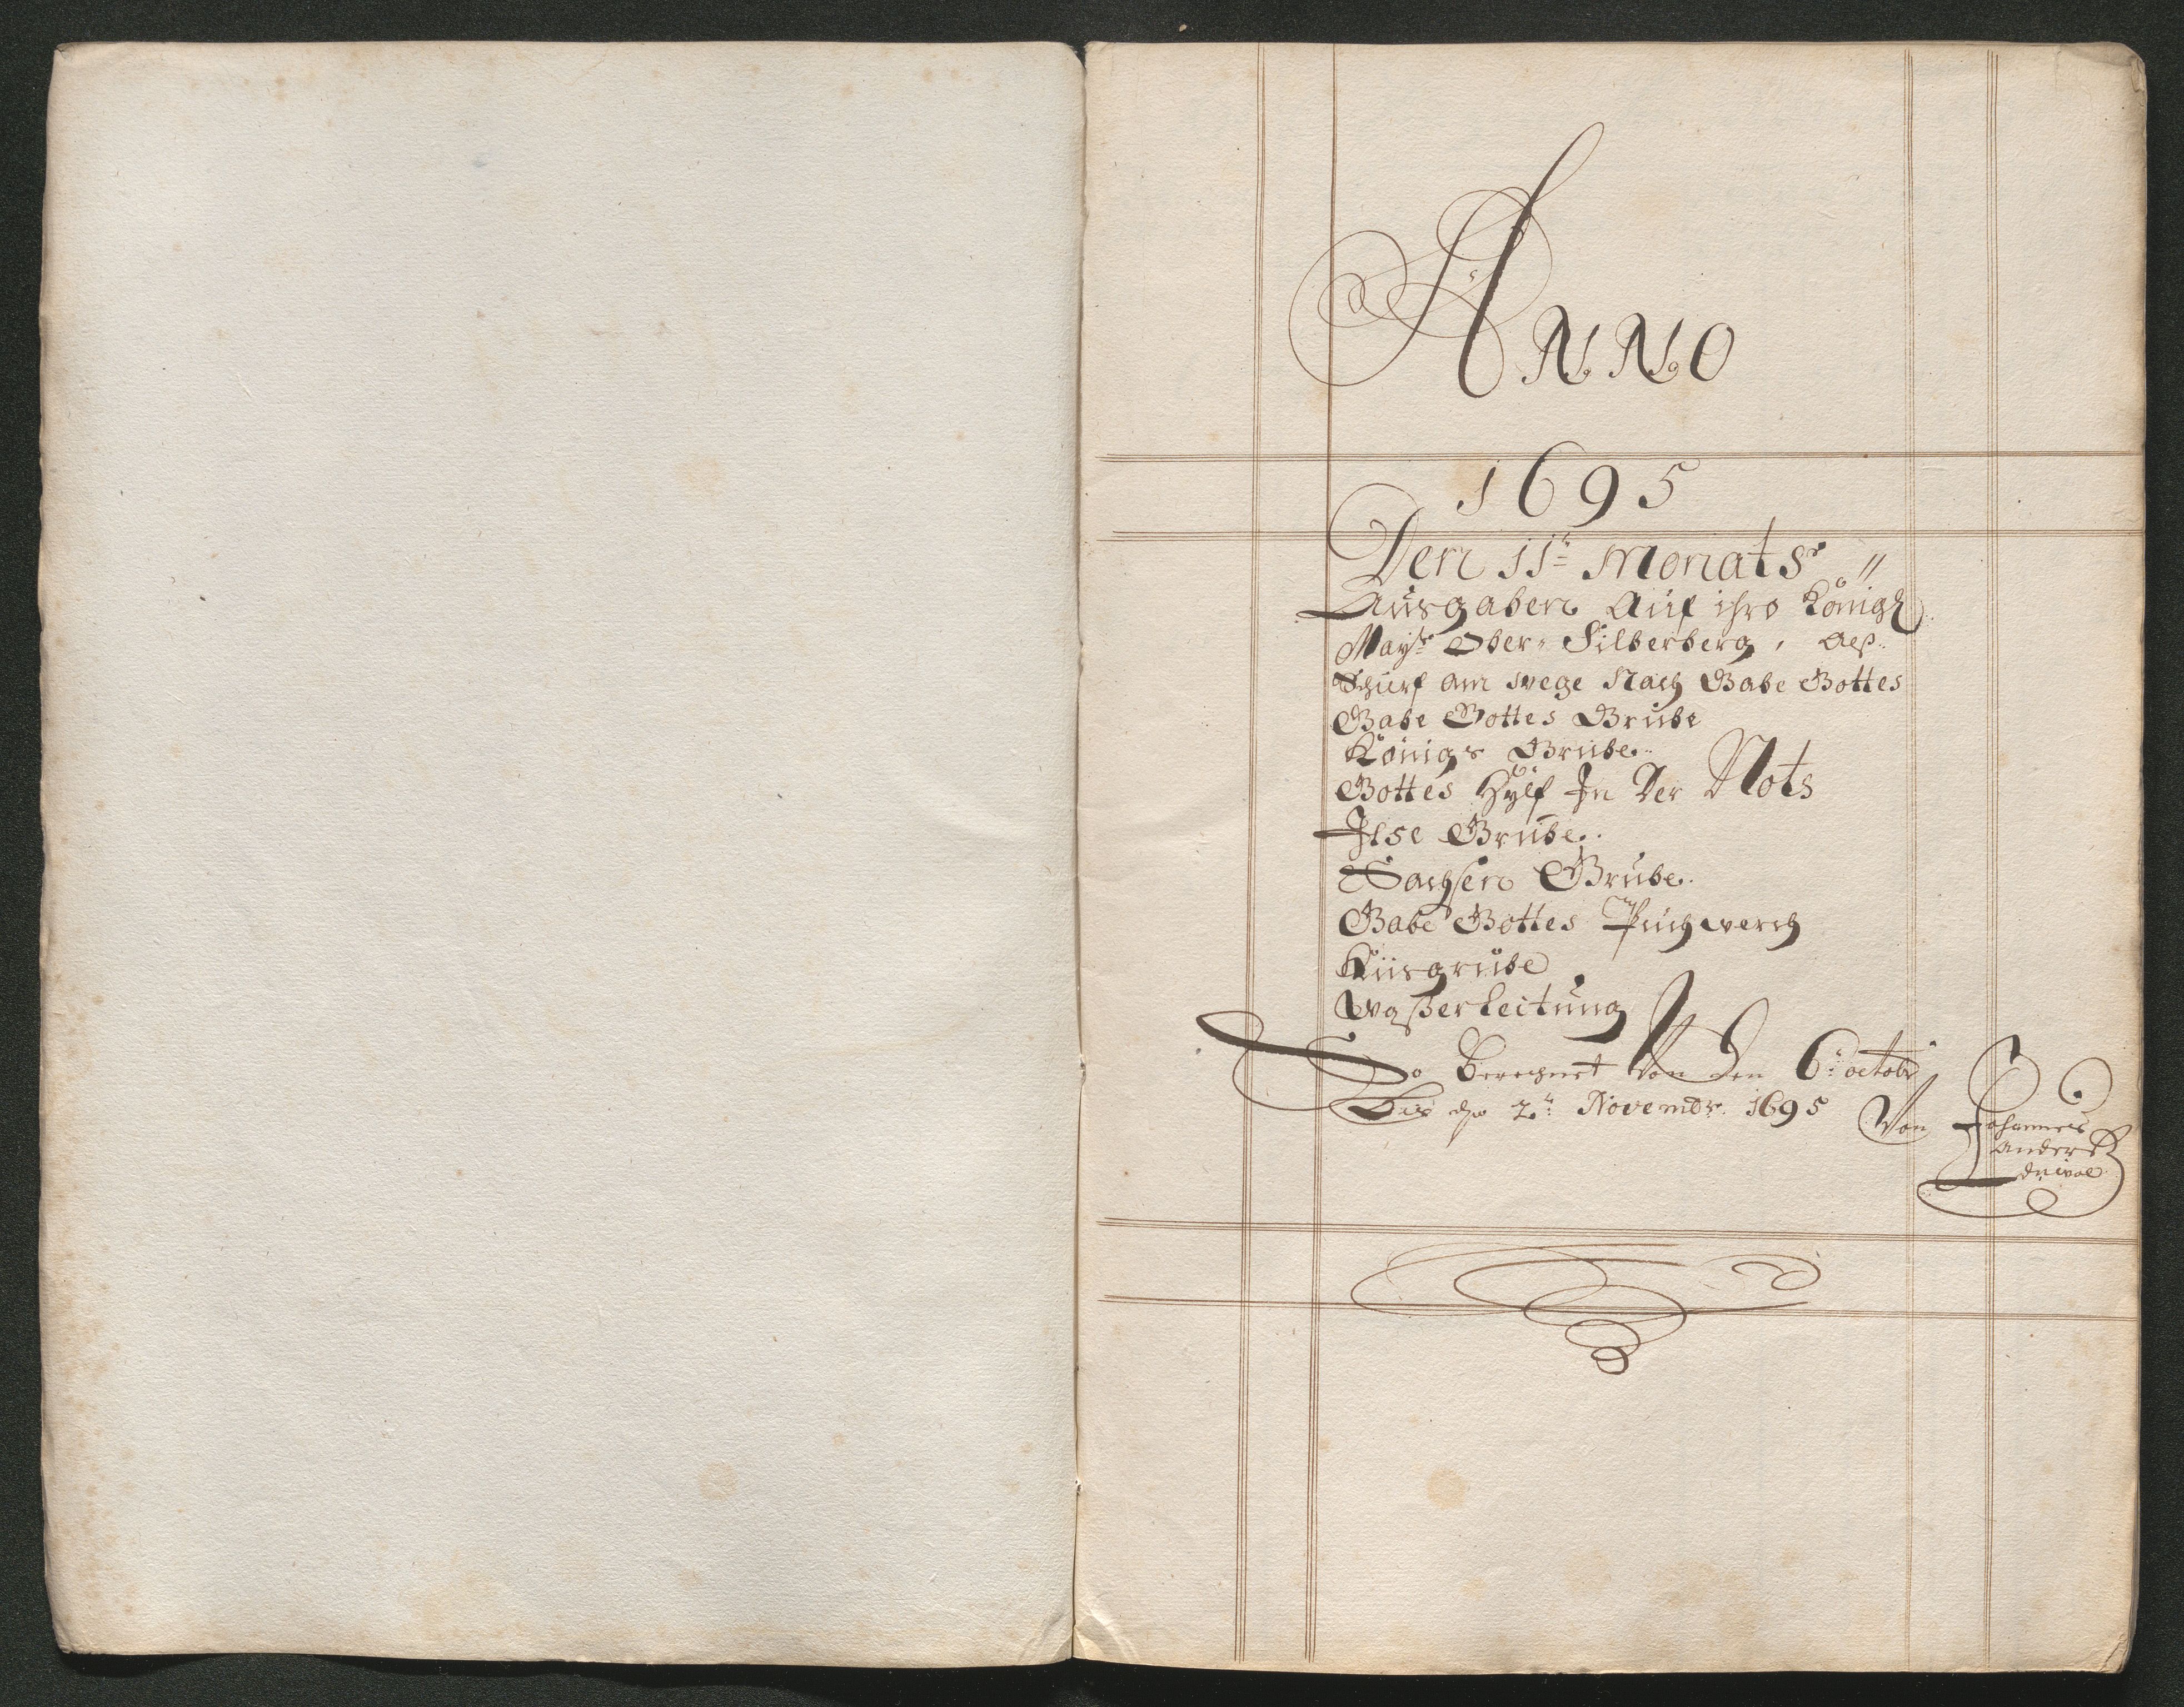 ANNO
1695
Den 11t Monats "
Ausgaben Auf ihro Königl
Mayt Ober- Silberberg, als
Schurf am wege Nach Gabe Gottes
Gabe Gottes Grube
Königs Grube
Gottes Hylf In Der Nots
Ilse Grube
Sachsen Grube
Gabe Gottes Puchwerch
Kiisgrube
Waßerleitung
So Berechnet Von Den 6: octobr
Bis den 2t: Novembr. 1695 Von Johannes
Anders